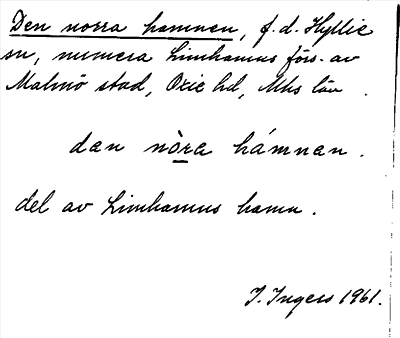 Den norra hamnen, f.d. Hyllie
sn, numera Limhamns förs. av
Malmö stad, Oxie hd, Mhs län.
dan nòra hámnan.
del av Limhamns hamn.
I. Ingers 1961.